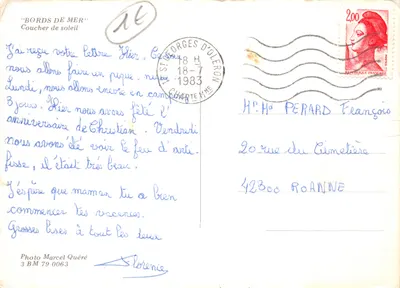 "BORDS DE MER"
Coucher de soleil
1€
J'ai reçu votre lettre Hier.
nous allons faire un pique-nique
Lundi, nous allons encore en camp
3 jours. Hier nous avons fété l'
anniversaire de Christian. Vendredi
nous avons été voir le feu d'arti-
fisse, il était très beau.
J'éspère que maman tu a bien
commencer tes vacances.
Grosses bises à tout les deux
Florence
Photo Marcel Quéré
3 BM 79 0063
ST GEORGES D'OLERON
18 H
18-7
1983
CHARENTE MME
2,00
REPUBLIQUE FRANÇAISE
Mr. Me PERARD François
20 rue du Cimetière
42300 ROANNE